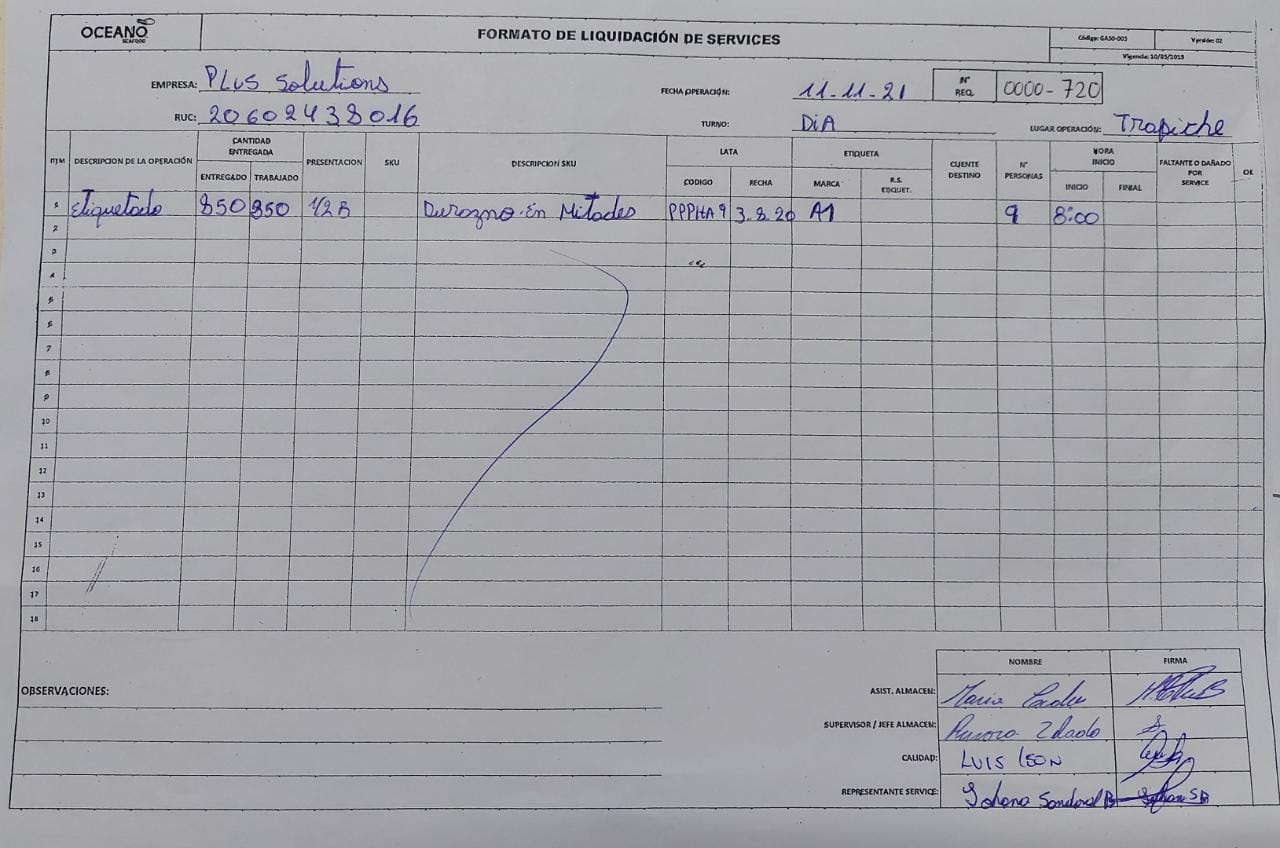 OCEANO
SEAFOOD
FORMATO DE LIQUIDACIÓN DE SERVICES
Código: GASO-005
Versión: 02
Vigencia: 10/05/2019
EMPRESA: PLUS Solutions
FECHA OPERACIÓN: 11-11-21
N° REQ. 0000-720
RUC: 20602438016
TURNO: DiA
LUGAR OPERACIÓN: Trapiche
ITEM DESCRIPCION DE LA OPERACIÓN CANTIDAD ENTREGADA PRESENTACION SKU DESCRIPCION SKU LATA ETIQUETA CLIENTE DESTINO N° PERSONAS HORA INICIO FALTANTE O DAÑADO POR SERVICE OK
ENTREGADO TRABAJADO CODIGO FECHA MARCA R.S. ETIQUET. INICIO FINIAL
1 Etiquetado 850 850 1/2 B Durozno En Mitades PPPHA9 3.8.20 A1 9 8:00
2
3
4
5
6
7
8
9
10
11
12
13
14
15
16
17
18
NOMBRE FIRMA
OBSERVACIONES:
ASIST. ALMACEN: Maria
SUPERVISOR / JEFE ALMACEN: Aurora
CALIDAD: LUIS leON
REPRESENTANTE SERVICE: Sandoval B